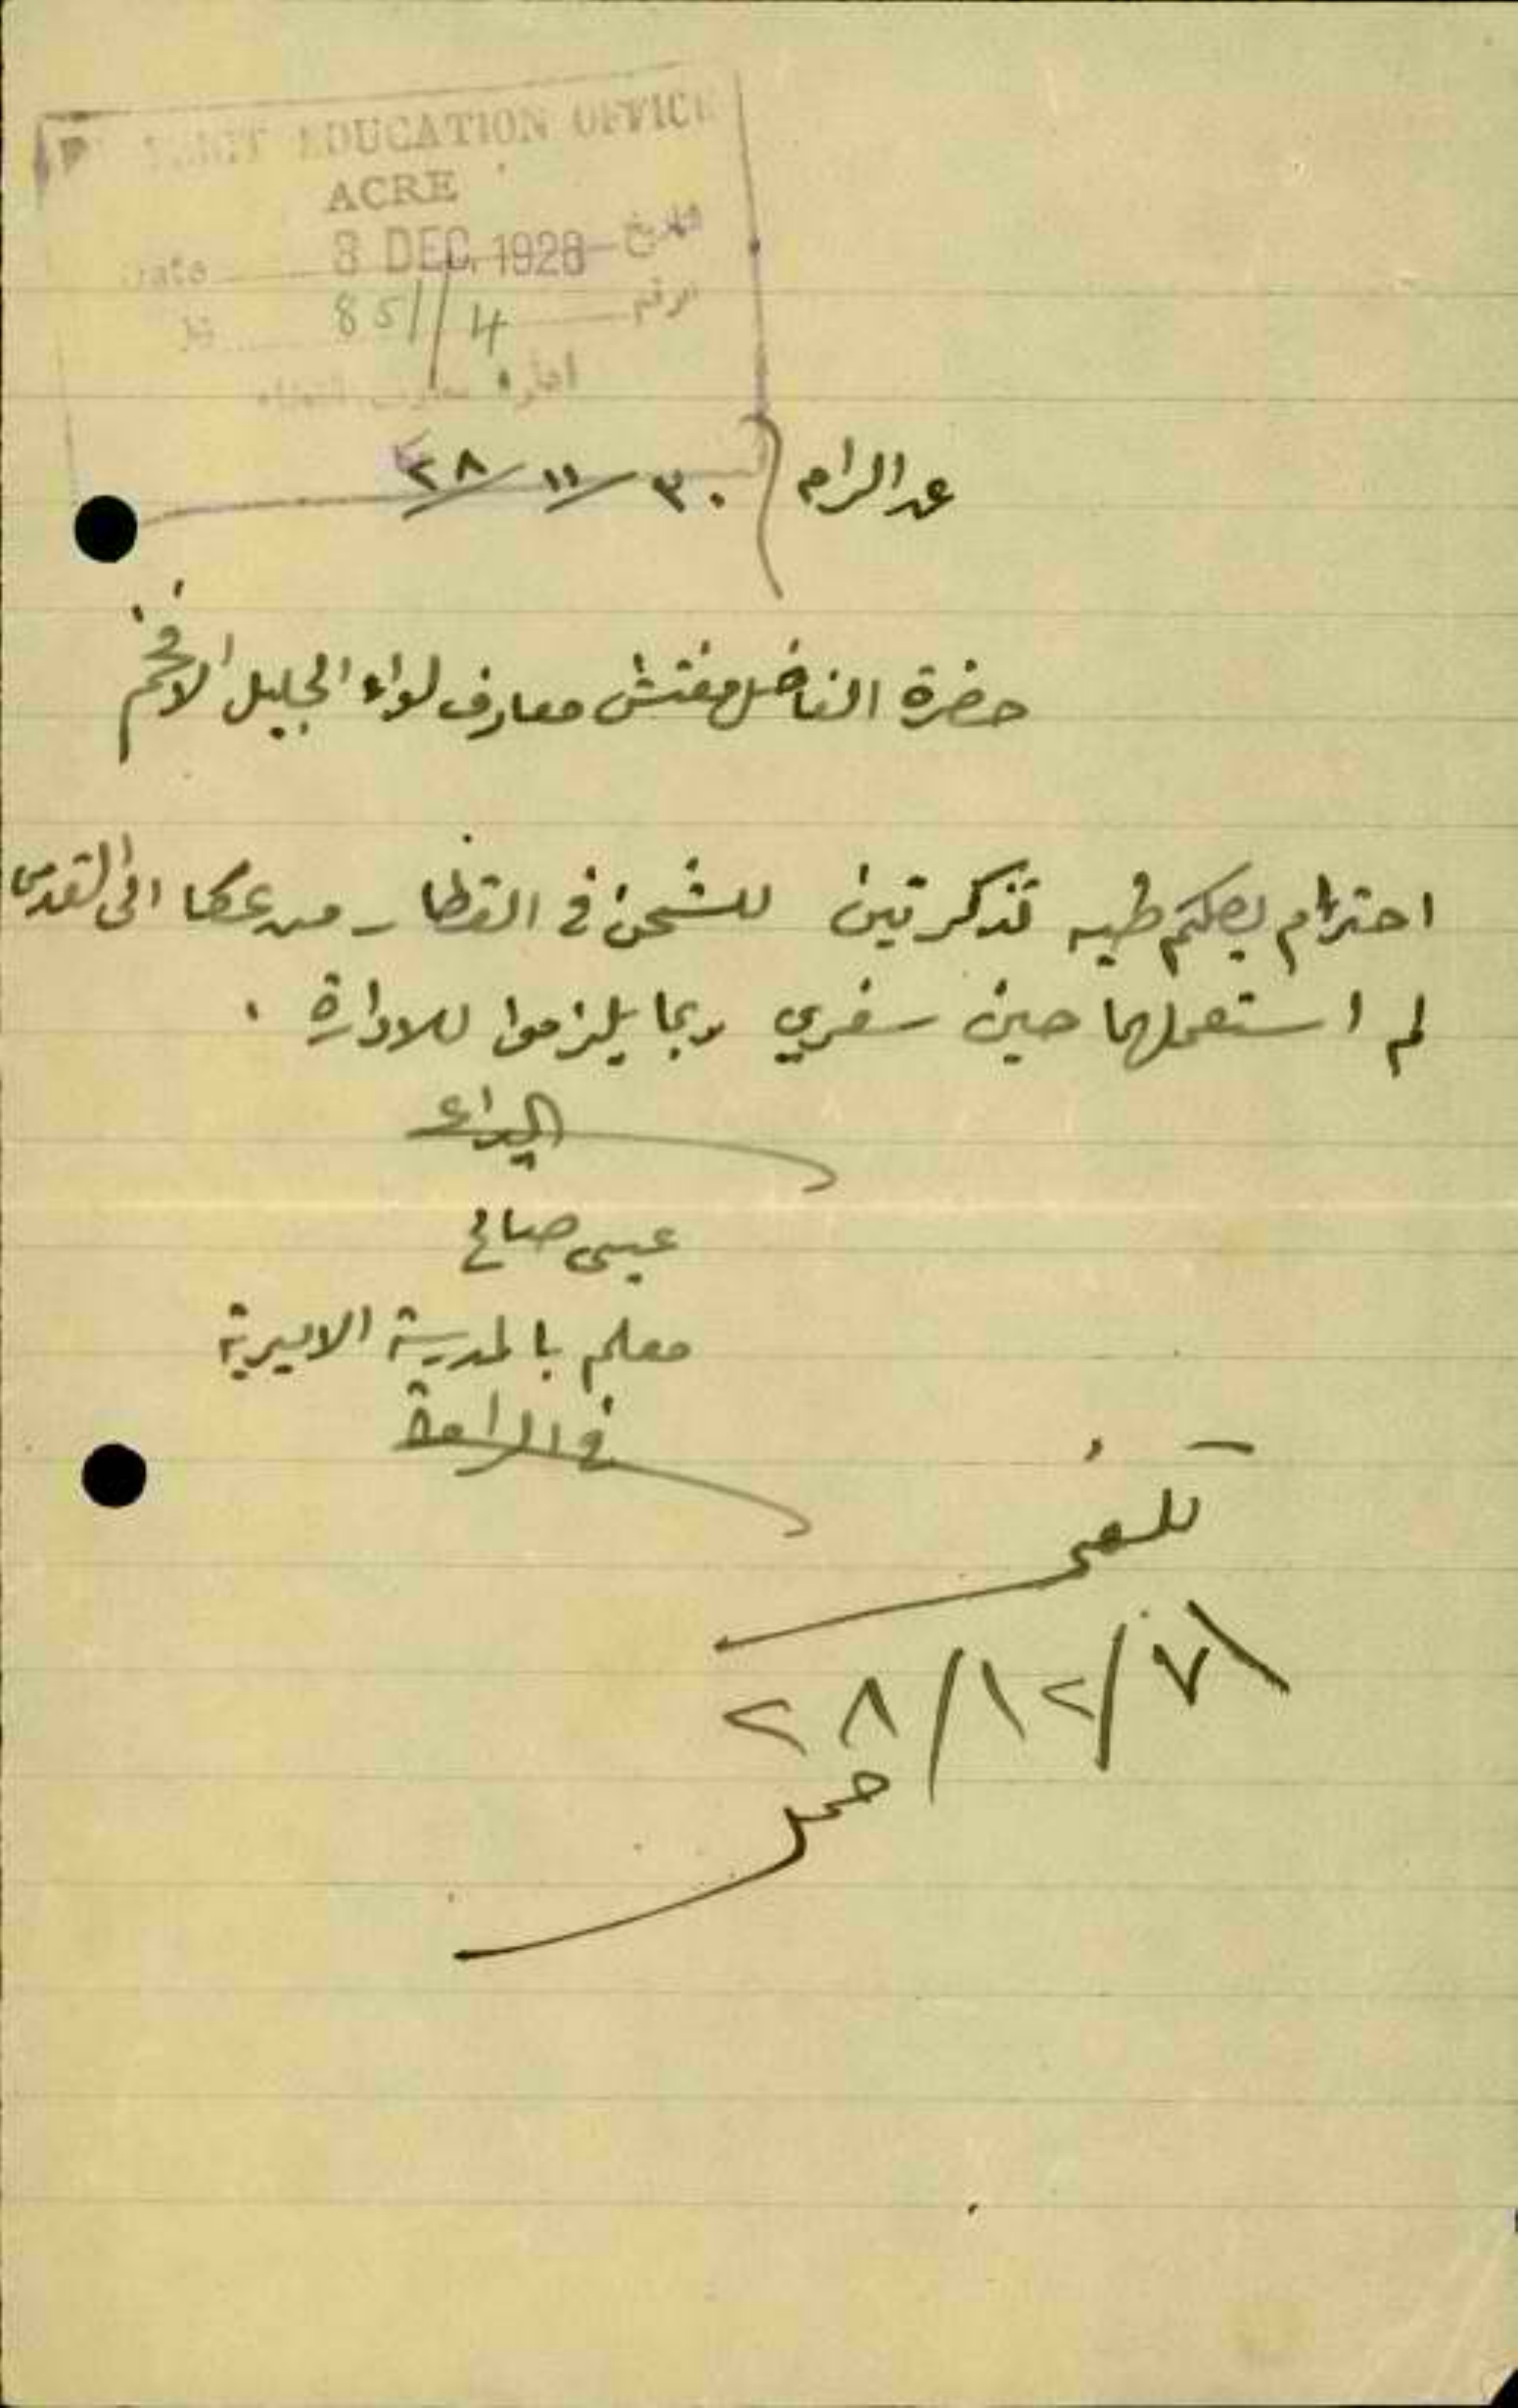 DISTRICT EDUCATION OFFICE
ACRE
Date 3 DEC. 1928 التاريخ
No 851/4 الرقم
عن الرامه ٣٠/١١/٢٨
حضرة الفاضل مفتش معارف لواء الجليل الافخم
احترام يصلكم طيه تذكرتين للشحن في القطار من عكا الى القدس
لم استعملهما حين سفري ربما يلزموا للادارة .
الداع
عيسى صالح
معلم بالمدرسة الاميرية
في الرامة
٢٨/١٢/٧